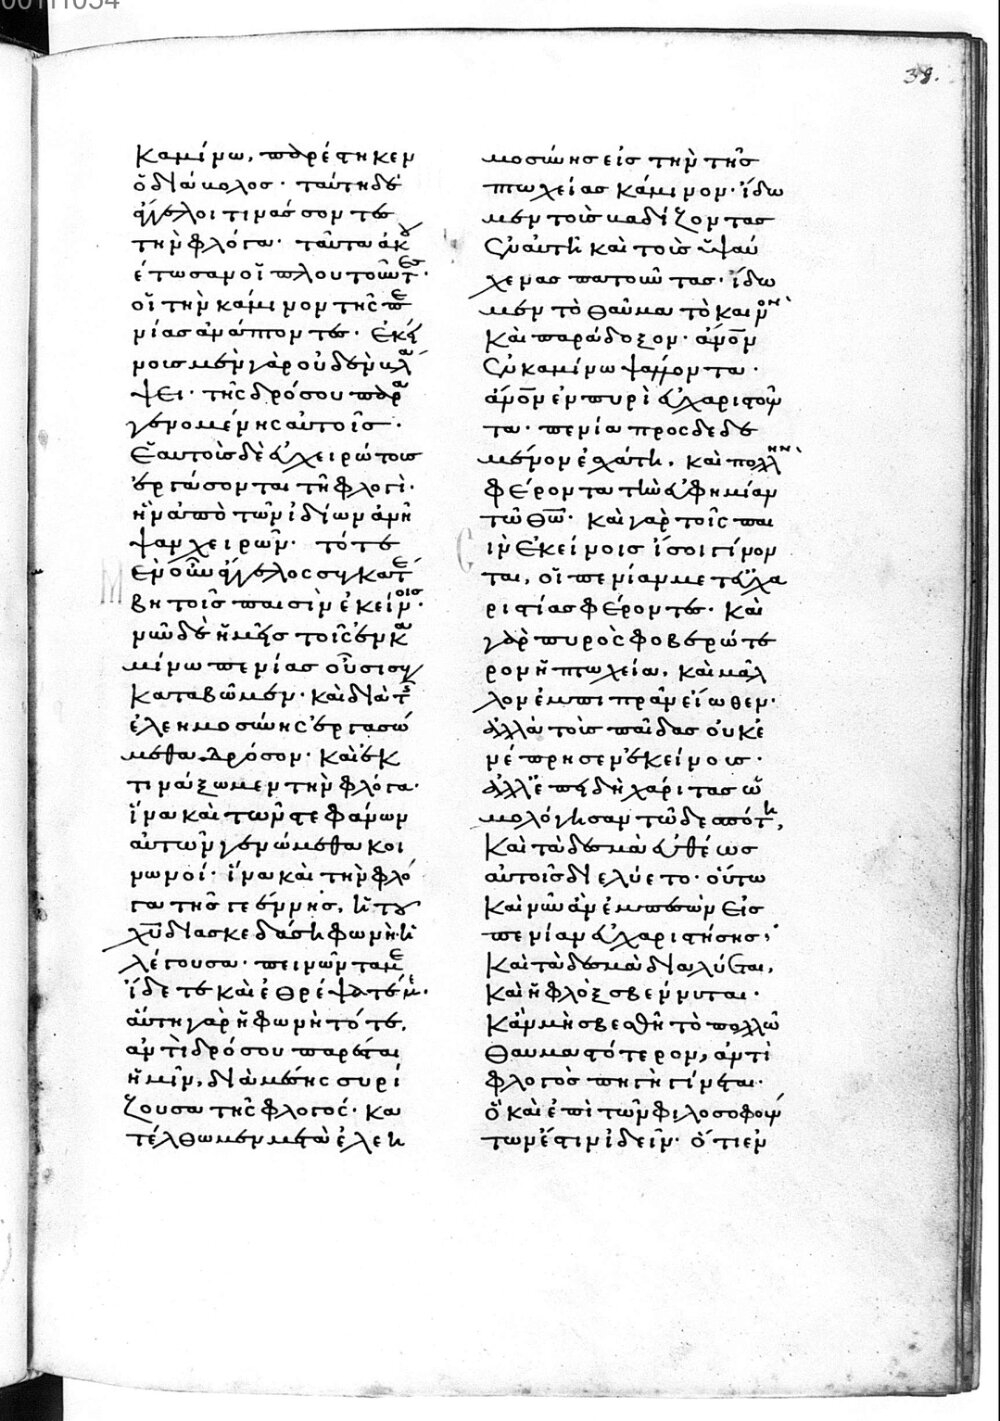 00111054
39.
καμίνω, παρέστηκεν
ὁ διάβολος· ταύτη δὲ
ἄγγελοι τινάσσοντες
τὴν φλόγα· ταῦτα ἀκου
έτωσαν οἱ πλουτοῦντες·
οἱ τὴν κάμινον τῆς πε
νίας ἀνάπτοντες· ἐκεί
νοις μὲν γὰρ οὐδὲν βλά
ψει· τῆς δρόσου παρα
γενομένης αὐτοῖς·
ἑαυτοὺς δὲ εὐχειρώτους
ἐργάσονται τῇ φλογὶ·
ἣν ἀπὸ τῶν ἰδίων ἀνῆ
ψαν χειρῶν· τότε
μὲν οὖν ἄγγελος συγκατέ
βη τοῖς παισὶν ἐκείνοις·
νῦν δὲ ἡμεῖς τοῖς ἐν κα
μίνω πενίας οὖσι συγ
καταβῶμεν· καὶ διὰ τῆς
ἐλεημοσύνης ἐργασώ
μεθα δρόσον· καὶ ἐκ
τινάξωμεν τὴν φλόγα·
ἵνα καὶ τῶν στεφάνων
αὐτῶν γενώμεθα κοι
νωνοί· ἵνα καὶ τὴν φλό
γα τῆς γεέννης, ἡ τοῦ
χυ διασκεδάση φωνὴ· ἡ
λέγουσα· πεινῶντά με
ἴδετε καὶ ἐθρέψατέ με·
αὕτη γὰρ ἡ φωνὴ τότε,
ἀντὶ δρόσου παρέσται
ἡμῖν, διὰ μέσης συρί
ζουσα τῆς φλογός· κα
τέλθωμεν μετὰ ἐλεη
μοσύνης εἰς τὴν τῆς
πτωχείας κάμινον· ἴδω
μεν τοὺς βαδίζοντας
ἐν αὐτῆ καὶ τοὺς ὑψαύ
χενας πατοῦντας· ἴδω
μεν τὸ θαῦμα τὸ καινὸν
καὶ παράδοξον· ἄνον
ἐν καμίνω ψάλλοντα·
ἄνον ἐν πυρὶ εὐχαριστοῦν
τα· πενία προσδεδε
μένον ἐσχάτη, καὶ πολλὴν
φέροντα τὴν εὐφημίαν
τῶ θω· καὶ γὰρ τοῖς παι
σὶν ἐκείνοις ἴσοι γίνον
ται, οἱ πενίαν μετ' εὐχα
ριστίας φέροντες· καὶ
γὰρ πυρὸς φοβερώτε
ρον ἡ πτωχεία, καὶ μᾶλ
λον ἐμπιπρᾶν εἴωθεν·
ἀλλὰ τοὺς παῖδας οὐκ ἐ
νέπρησεν ἐκείνους·
ἀλλ' ἐπειδὴ χάριτας ὡ
μολόγησαν τῶ δεσπότη,
καὶ τὰ δεσμὰ εὐθέως
αὐτοῖς διελύετο· οὕτω
καὶ νῦν ἂν ἐμπεσὼν εἰς
πενίαν εὐχαριστήσης,
καὶ τὰ δεσμὰ διαλύεται,
καὶ ἡ φλὸξ σβέννυται·
κἂν μὴ σβεσθῆ τὸ πολλῶ
θαυμαστότερον, ἀντὶ
φλογὸς πηγὴ γίνεται·
ὃ καὶ ἐπὶ τῶν φιλοσοφούν
των ἔστιν ἰδεῖν· ὅτι ἐν